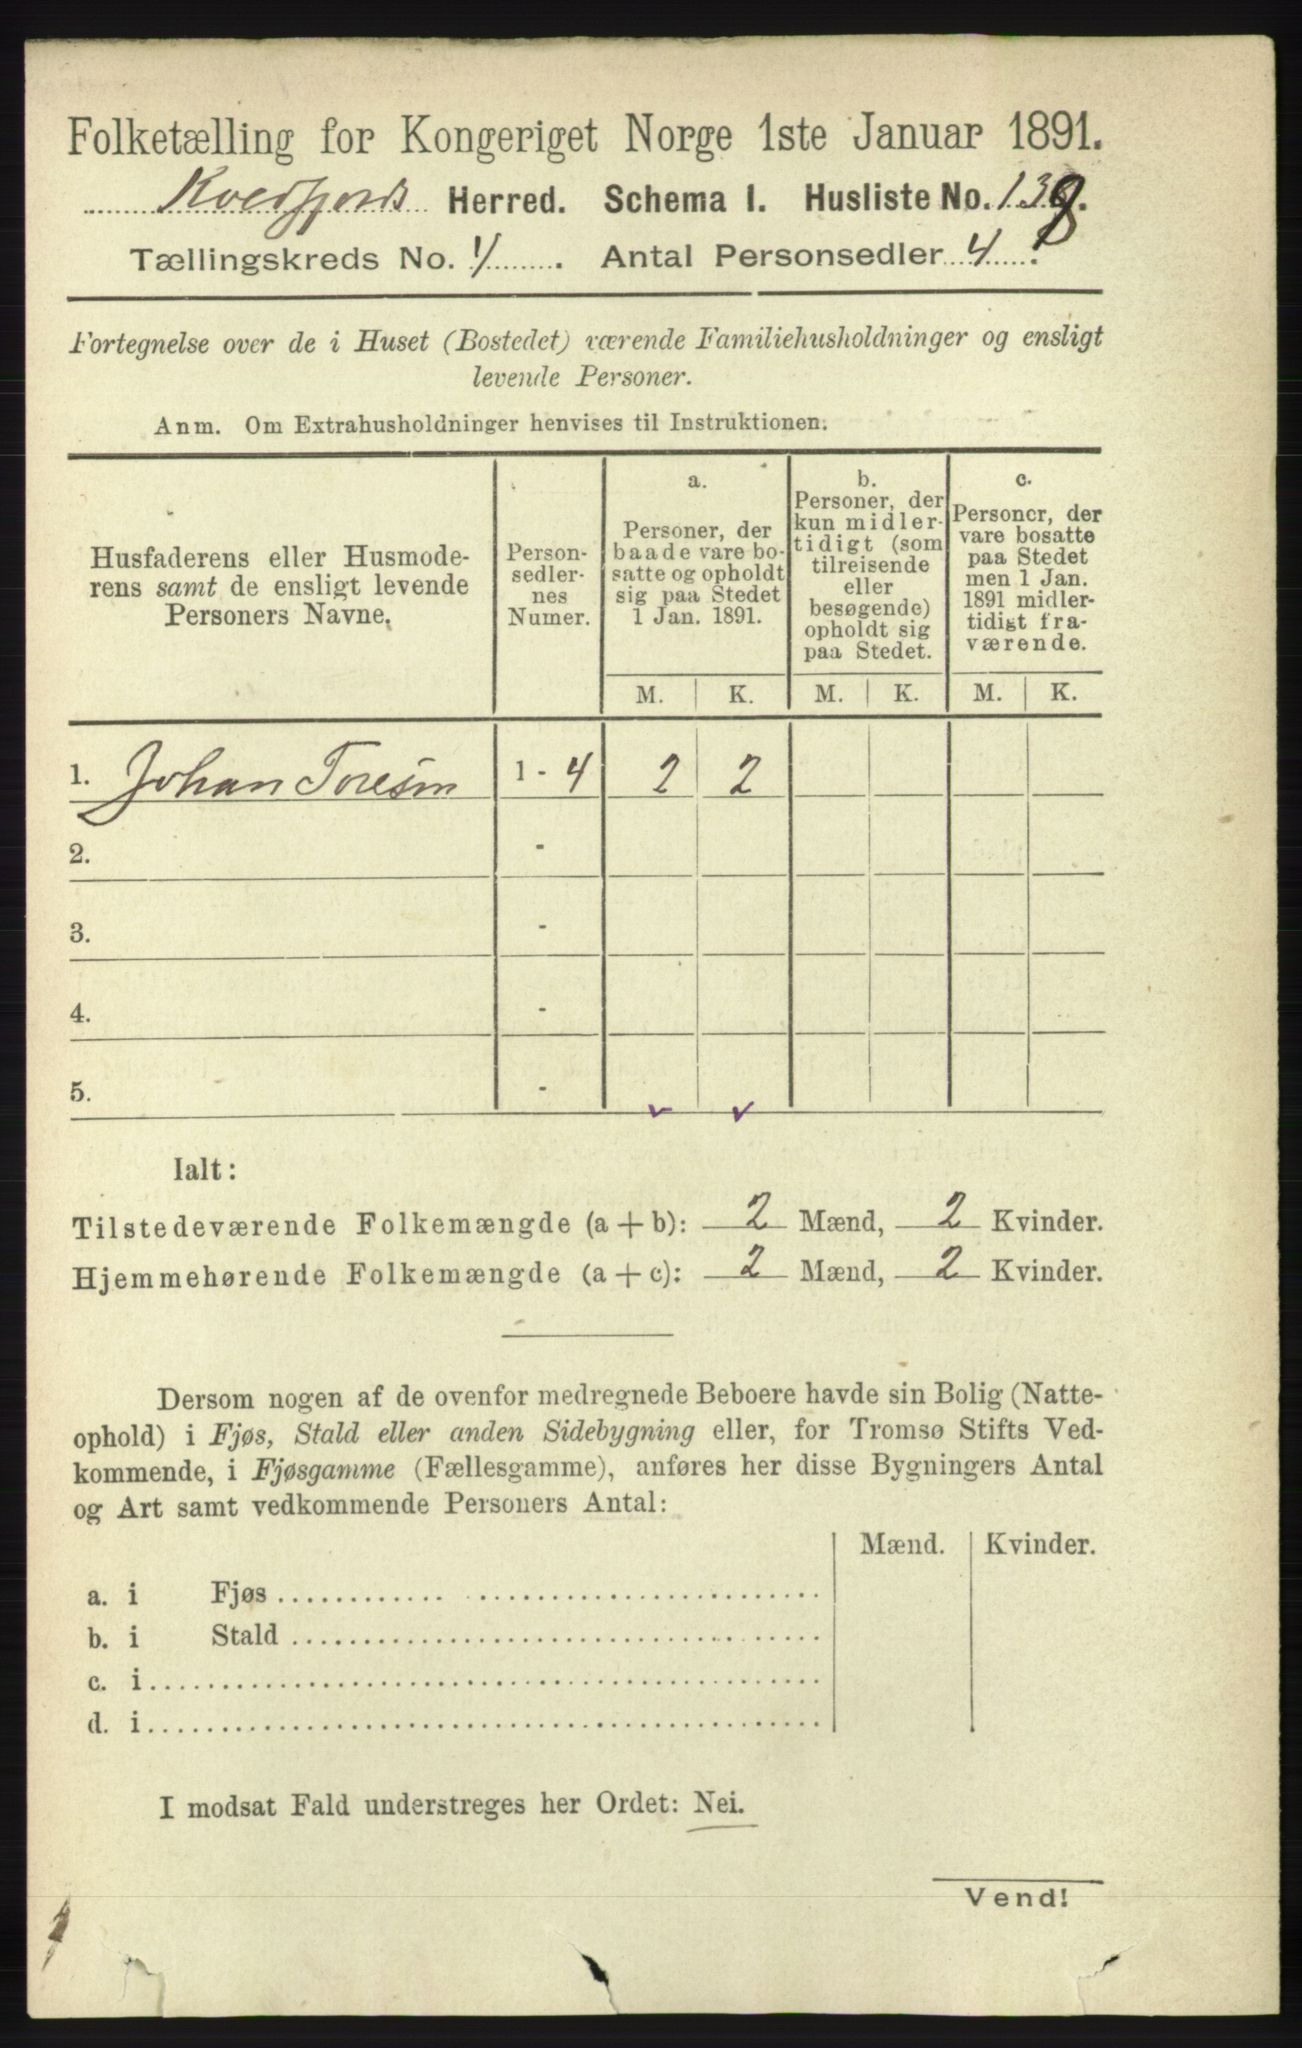 Folketælling for Kongeriget Norge 1ste Januar 1891.
Kvedfjords Herred. Schema I. Husliste No. 138.
Tællingskreds No. 4. Antal Personsedler 4.
Fortegnelse over de i Huset (Bostedet) værende Familiehusholdninger og ensligt
levende Personer.
Anm. Om Extrahusholdninger henvises til Instruktionen.
Husfaderens eller Husmode-
rens samt de ensligt levende
Personers Navne.
Person-
sedler-
nes
Numer.
a.
Personer, der
baade vare bo-
satte og opholdt
sig paa Stedet
1 Jan. 1891.
b.
Personer, der
kun midler-
tidigt (som
tilreisende
eller
besøgende)
opholdt sig
paa Stedet.
c.
Personer, der
vare bosatte
paa Stedet
men 1 Jan.
1891 midler-
tidigt fra-
værende.
M. K. M. K. M. K.
1. Johan Toresen 1 - 4 2 2
2. -
3. -
4. -
5. -
Ialt:
Tilstedeværende Folkemængde (a + b): 2 Mænd, 2 Kvinder.
Hjemmehørende Folkemængde (a + c): 2 Mænd, 2 Kvinder.
Dersom nogen af de ovenfor medregnede Beboere havde sin Bolig (Natte-
ophold) i Fjøs, Stald eller anden Sidebygning eller, for Tromsø Stifts Ved-
kommende, i Fjøsgamme (Fællesgamme), anføres her disse Bygningers Antal
og Art samt vedkommende Personers Antal:
Mænd. Kvinder.
a. i Fjøs
b. i Stald
c. i
d. i
I modsat Fald understreges her Ordet: Nei.
Vend!